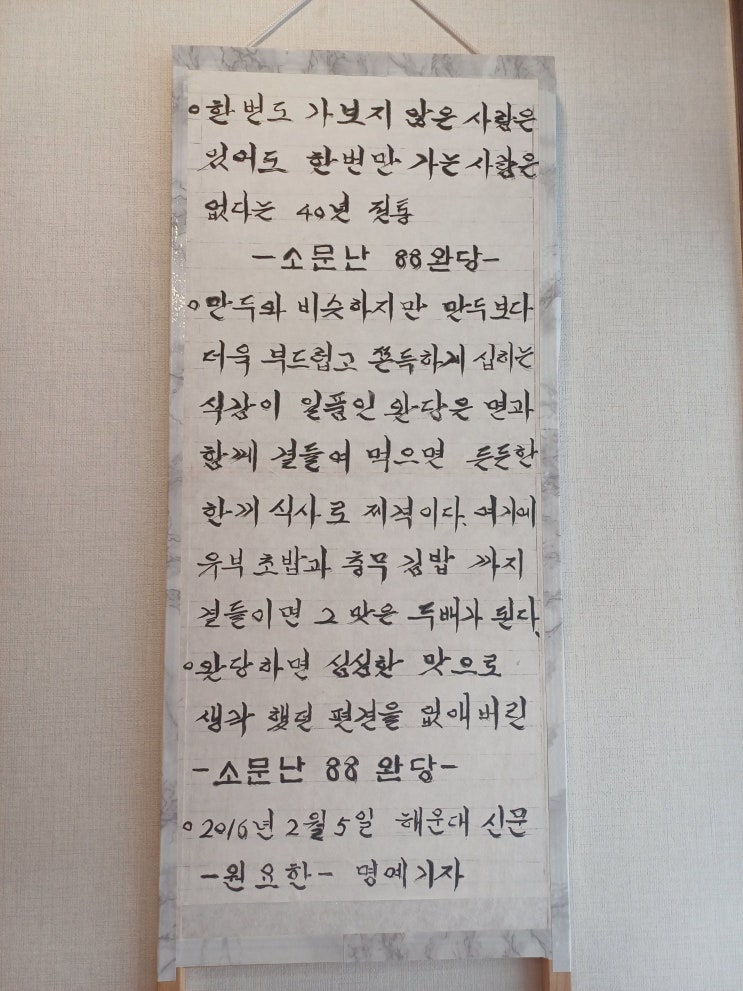 o 한번도 가보지 않은 사람은
있어도 한번만 가는 사람은
없다는 40년 전통
-소문난 88완당-
o 만두와 비슷하지만 만두보다
더욱 부드럽고 쫀득하게 십히는
식감이 일품인 완당은 면과
함께 곁들여 먹으면 든든한
한끼 식사로 제격이다. 여기에
유부초밥과 충무김밥 까지
곁들이면 그 맛은 두배가 된다.
o 완당하면 심심한 맛으로
생각 했던 편견을 없애버린
-소문난 88 완당-
o 2016년 2월 5일 해운대 신문
-원요한- 명예기자